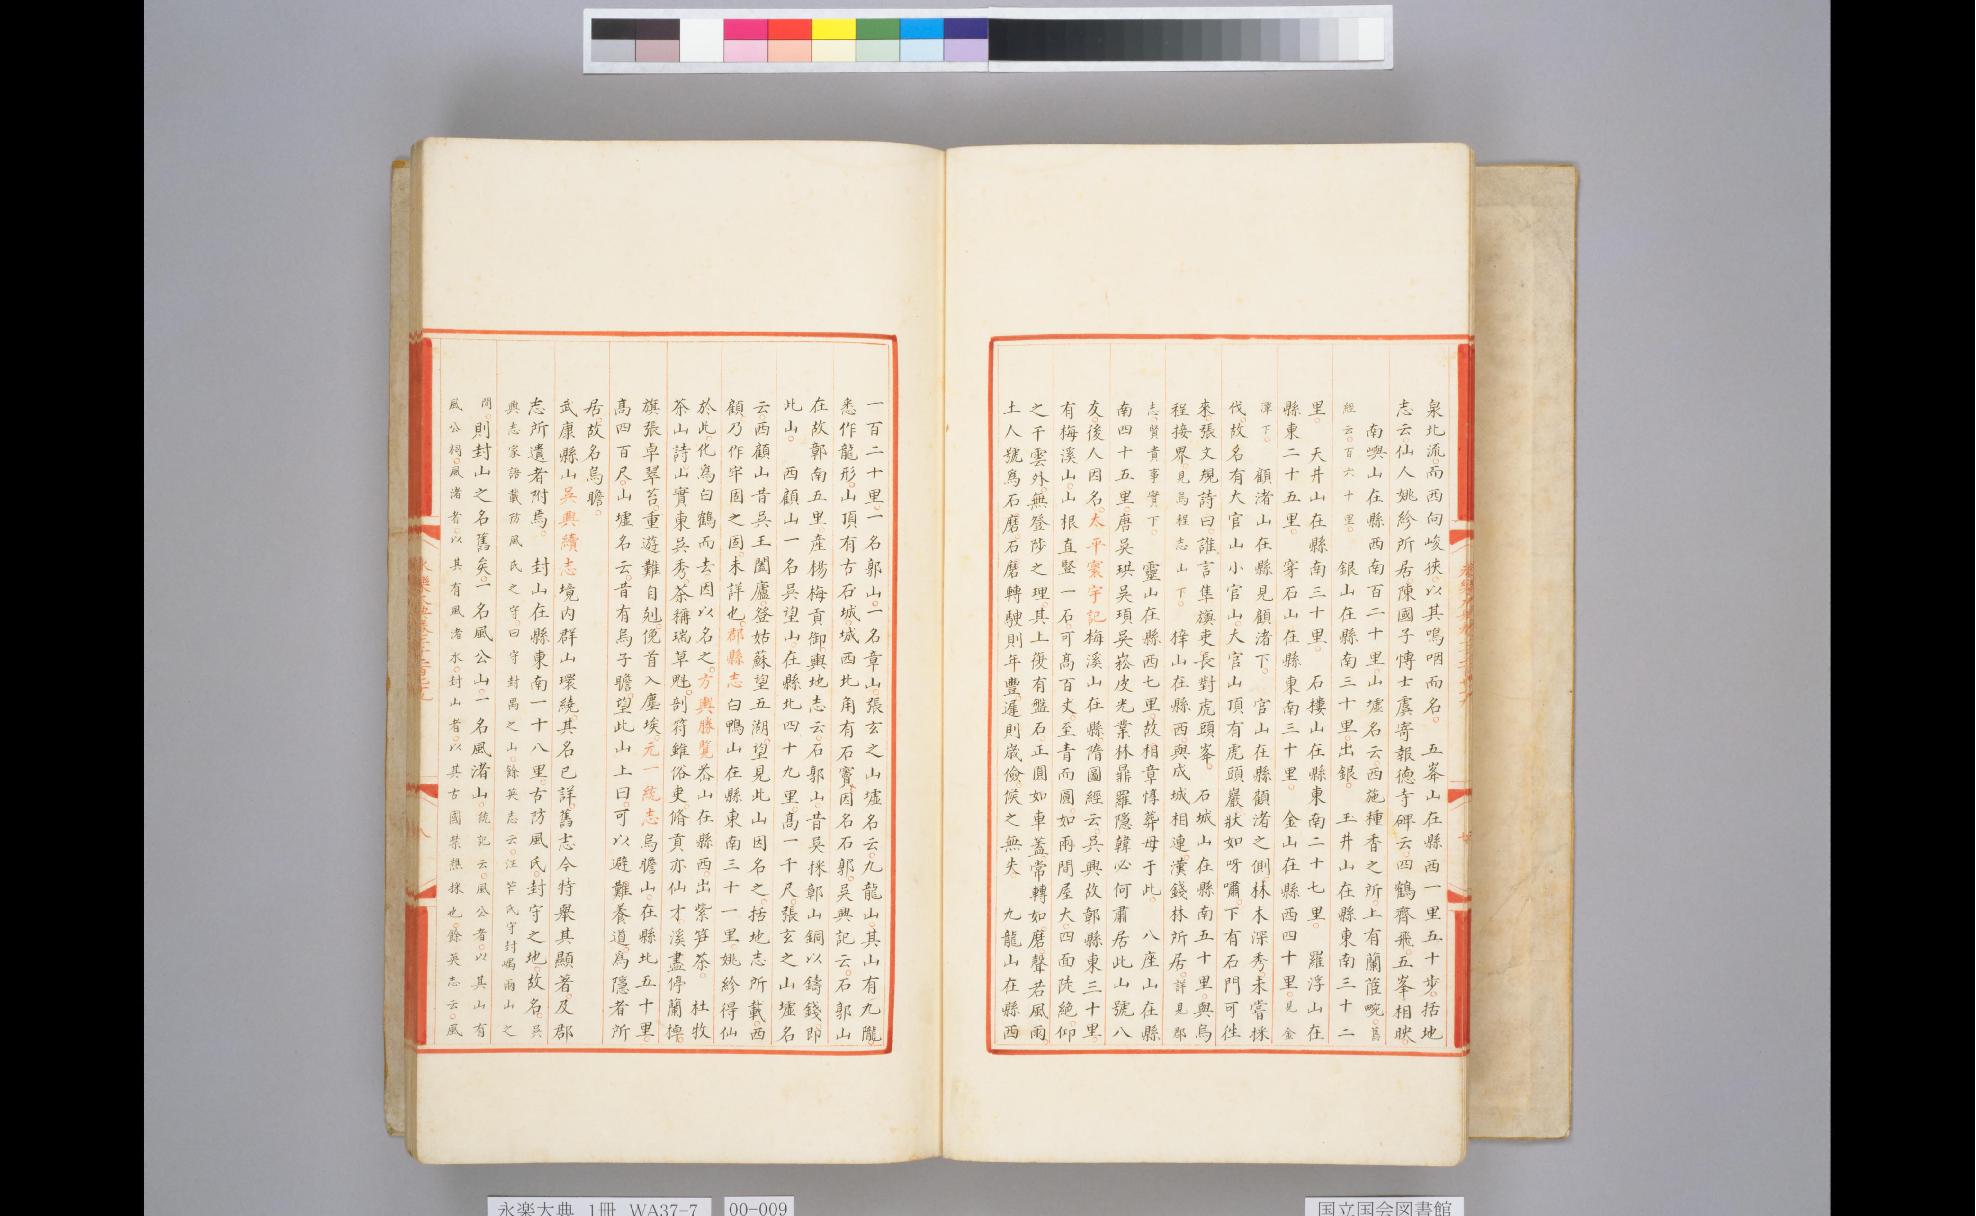 泉北流而西向峻狹以其鳴咽而名 五峯山在縣西一里五十步括地
志云仙人姚紾所居陳國子愽士虞寄報德寺碑云四鶴齊飛五峯相映
南嶼山在縣西南百二十里山墟名云西施種香之所上有蘭茝畹舊
經云百六十里 銀山在縣南三十里出銀 玉井山在縣東南三十二
里 天井山在縣南三十里 石樓山在縣東南二十七里 羅浮山在
縣東二十五里 穿石山在縣東南三十里 金山在縣西四十里見金
潭下 顧渚山在縣見顧渚下 官山在縣顧渚之側林木深秀未嘗採
伐故名有大官山小官山大官山頂有虎頭巖狀如呀嘯下有石門可徃
來張文規詩曰誰言隼旟吏長對虎頭峯 石城山在縣南五十里與烏
程接界見烏程志山下 㭐山在縣西與成城相連漢錢林所居詳見郡
志賢貴事實下 靈山在縣西七里故相章惇葬母于此 八座山在縣
南四十五里唐吳珙吳頊吳崧皮光業林鼎羅隠韓必何肅居此山號八
友後人因名太平寰宇記梅溪山在縣隋圖經云吳興故鄣縣東三十里
有梅溪山山根直竪一石可髙百丈至青而圓如兩間屋大四面陡絶仰
之干雲外無登陟之理其上復有盤石正圓如車蓋常轉如磨聲若風雨
土人號爲石磨石磨轉駛則年豐遲則歳儉候之無失 九龍山在縣西
一百二十里一名郭山一名章山張玄之山墟名云九龍山其山有九隴
悉作龍形山頂有古石城城西北角有石竇因名石郭吳興記云石郭山
在故鄣南五里產楊梅貢御輿地志云石郭山昔吳採鄣山銅以鑄錢即
此山 西顧山一名吳望山在縣北四十九里髙一千尺張玄之山墟名
云西顧山昔吳王闔廬登姑蘇望五湖望見此山因名之括地志所載西
顧乃作牢固之固未詳也郡縣志白鴨山在縣東南三十一里姚紾得仙
於此化爲白鶴而去因以名之方輿勝覽茶山在縣西出紫笋茶 杜牧
茶山詩山實東吳秀茶稱瑞草魁剖符雖俗吏脩貢亦仙才溪盡停蘭棹
旗張卓翠苔重遊難自剋俛首入塵埃元一統志烏瞻山在縣北五十里
髙四百尺山墟名云昔有烏子瞻望此山上曰可以避難養道爲隱者所
居故名烏瞻
武康縣山吳興續志境內群山環繞其名已詳舊志今特舉其顯著及郡
志所遺者附焉 封山在縣東南一十八里古防風氏封守之地故名吳
興志家語載防風氏之守曰守封禺之山餘英志云汪芒氏守封嵎兩山之
間則封山之名舊矣一名風公山一名風渚山統記云風公者以其山有
風公祠風渚者以其有風渚水封山者以其古國禁樵採也餘英志云風
永楽大典 1冊 WA37-7
00-009
国立国会図書館